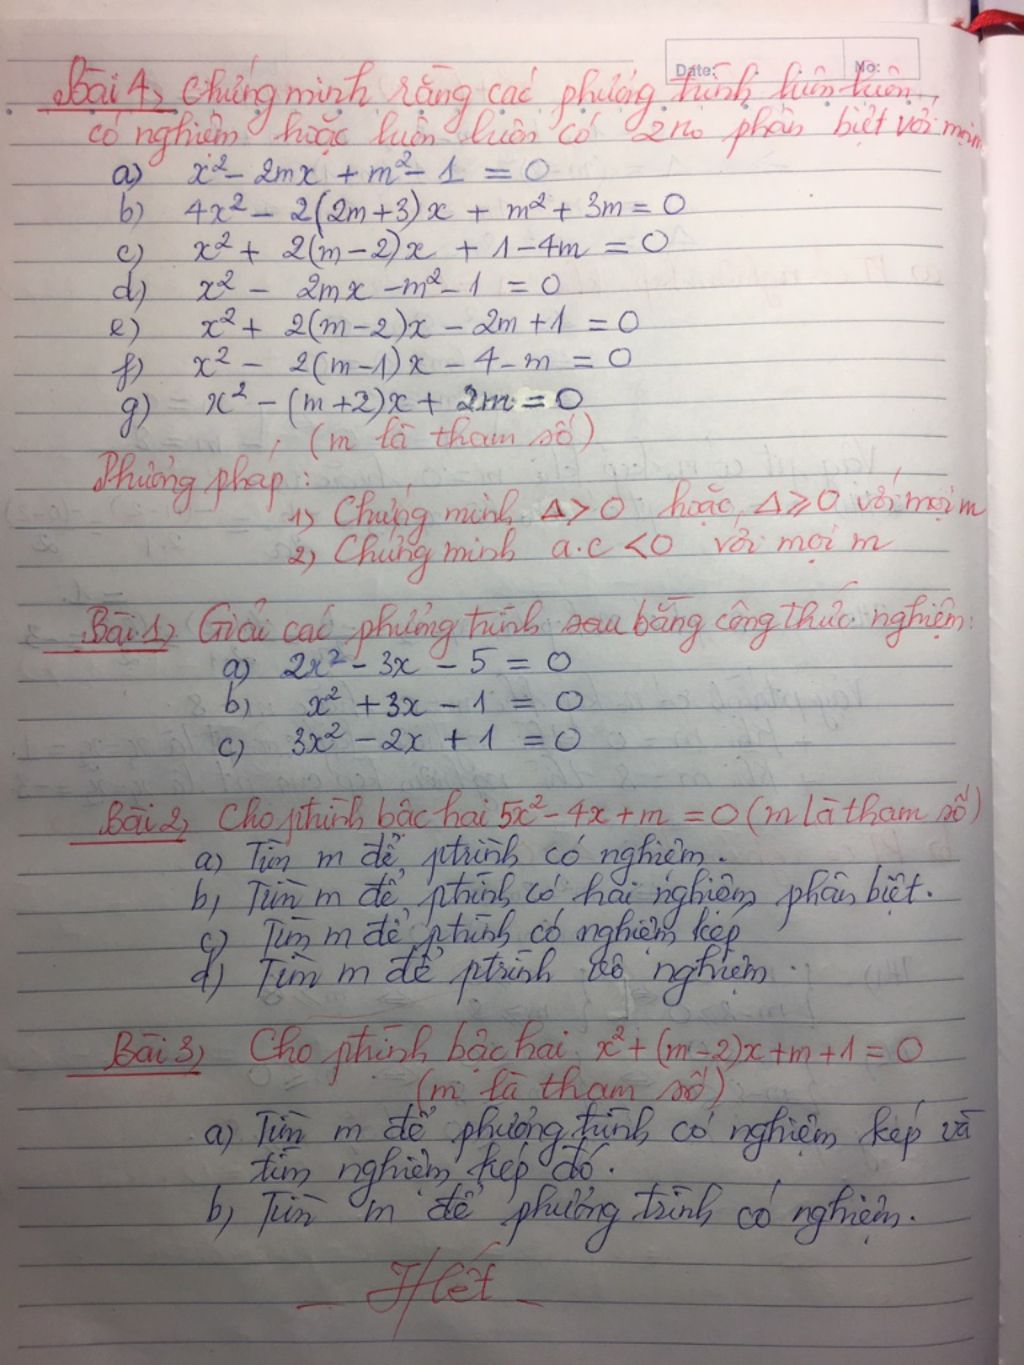 Date: No:
Bài 4, Chứng minh rằng các phương trình luôn luôn
có nghiệm hoặc luôn luôn có 2 no phân biệt với mọi m
a) x² - 2mx + m² - 1 = 0
b) 4x² - 2(2m+3)x + m² + 3m = 0
c) x² + 2(m-2)x + 1-4m = 0
d) x² - 2mx -m² -1 = 0
e) x² + 2(m-2)x - 2m+1 = 0
f) x² - 2(m-1)x - 4-m = 0
g) x² - (m+2)x + 2m = 0
(m là tham số)
Phương pháp:
1) Chứng minh Δ > 0 hoặc Δ ≥ 0 với mọi m
2) Chứng minh a.c < 0 với mọi m
Bài 1, Giải các phương trình sau bằng công thức nghiệm:
a) 2x² - 3x - 5 = 0
b) x² + 3x - 1 = 0
c) 3x² - 2x + 1 = 0
Bài 2, Cho ptrình bậc hai 5x² - 4x + m = 0 (m là tham số)
a) Tìm m để ptrình có nghiệm.
b) Tìm m để ptrình có hai nghiệm phân biệt.
c) Tìm m để ptrình có nghiệm kép
d) Tìm m để ptrình vô nghiệm.
Bài 3, Cho ptrình bậc hai x² + (m-2)x + m + 1 = 0
(m là tham số)
a) Tìm m để phương trình có nghiệm kép và
tìm nghiệm kép đó.
b) Tìm m để phương trình có nghiệm.
_ Hết _